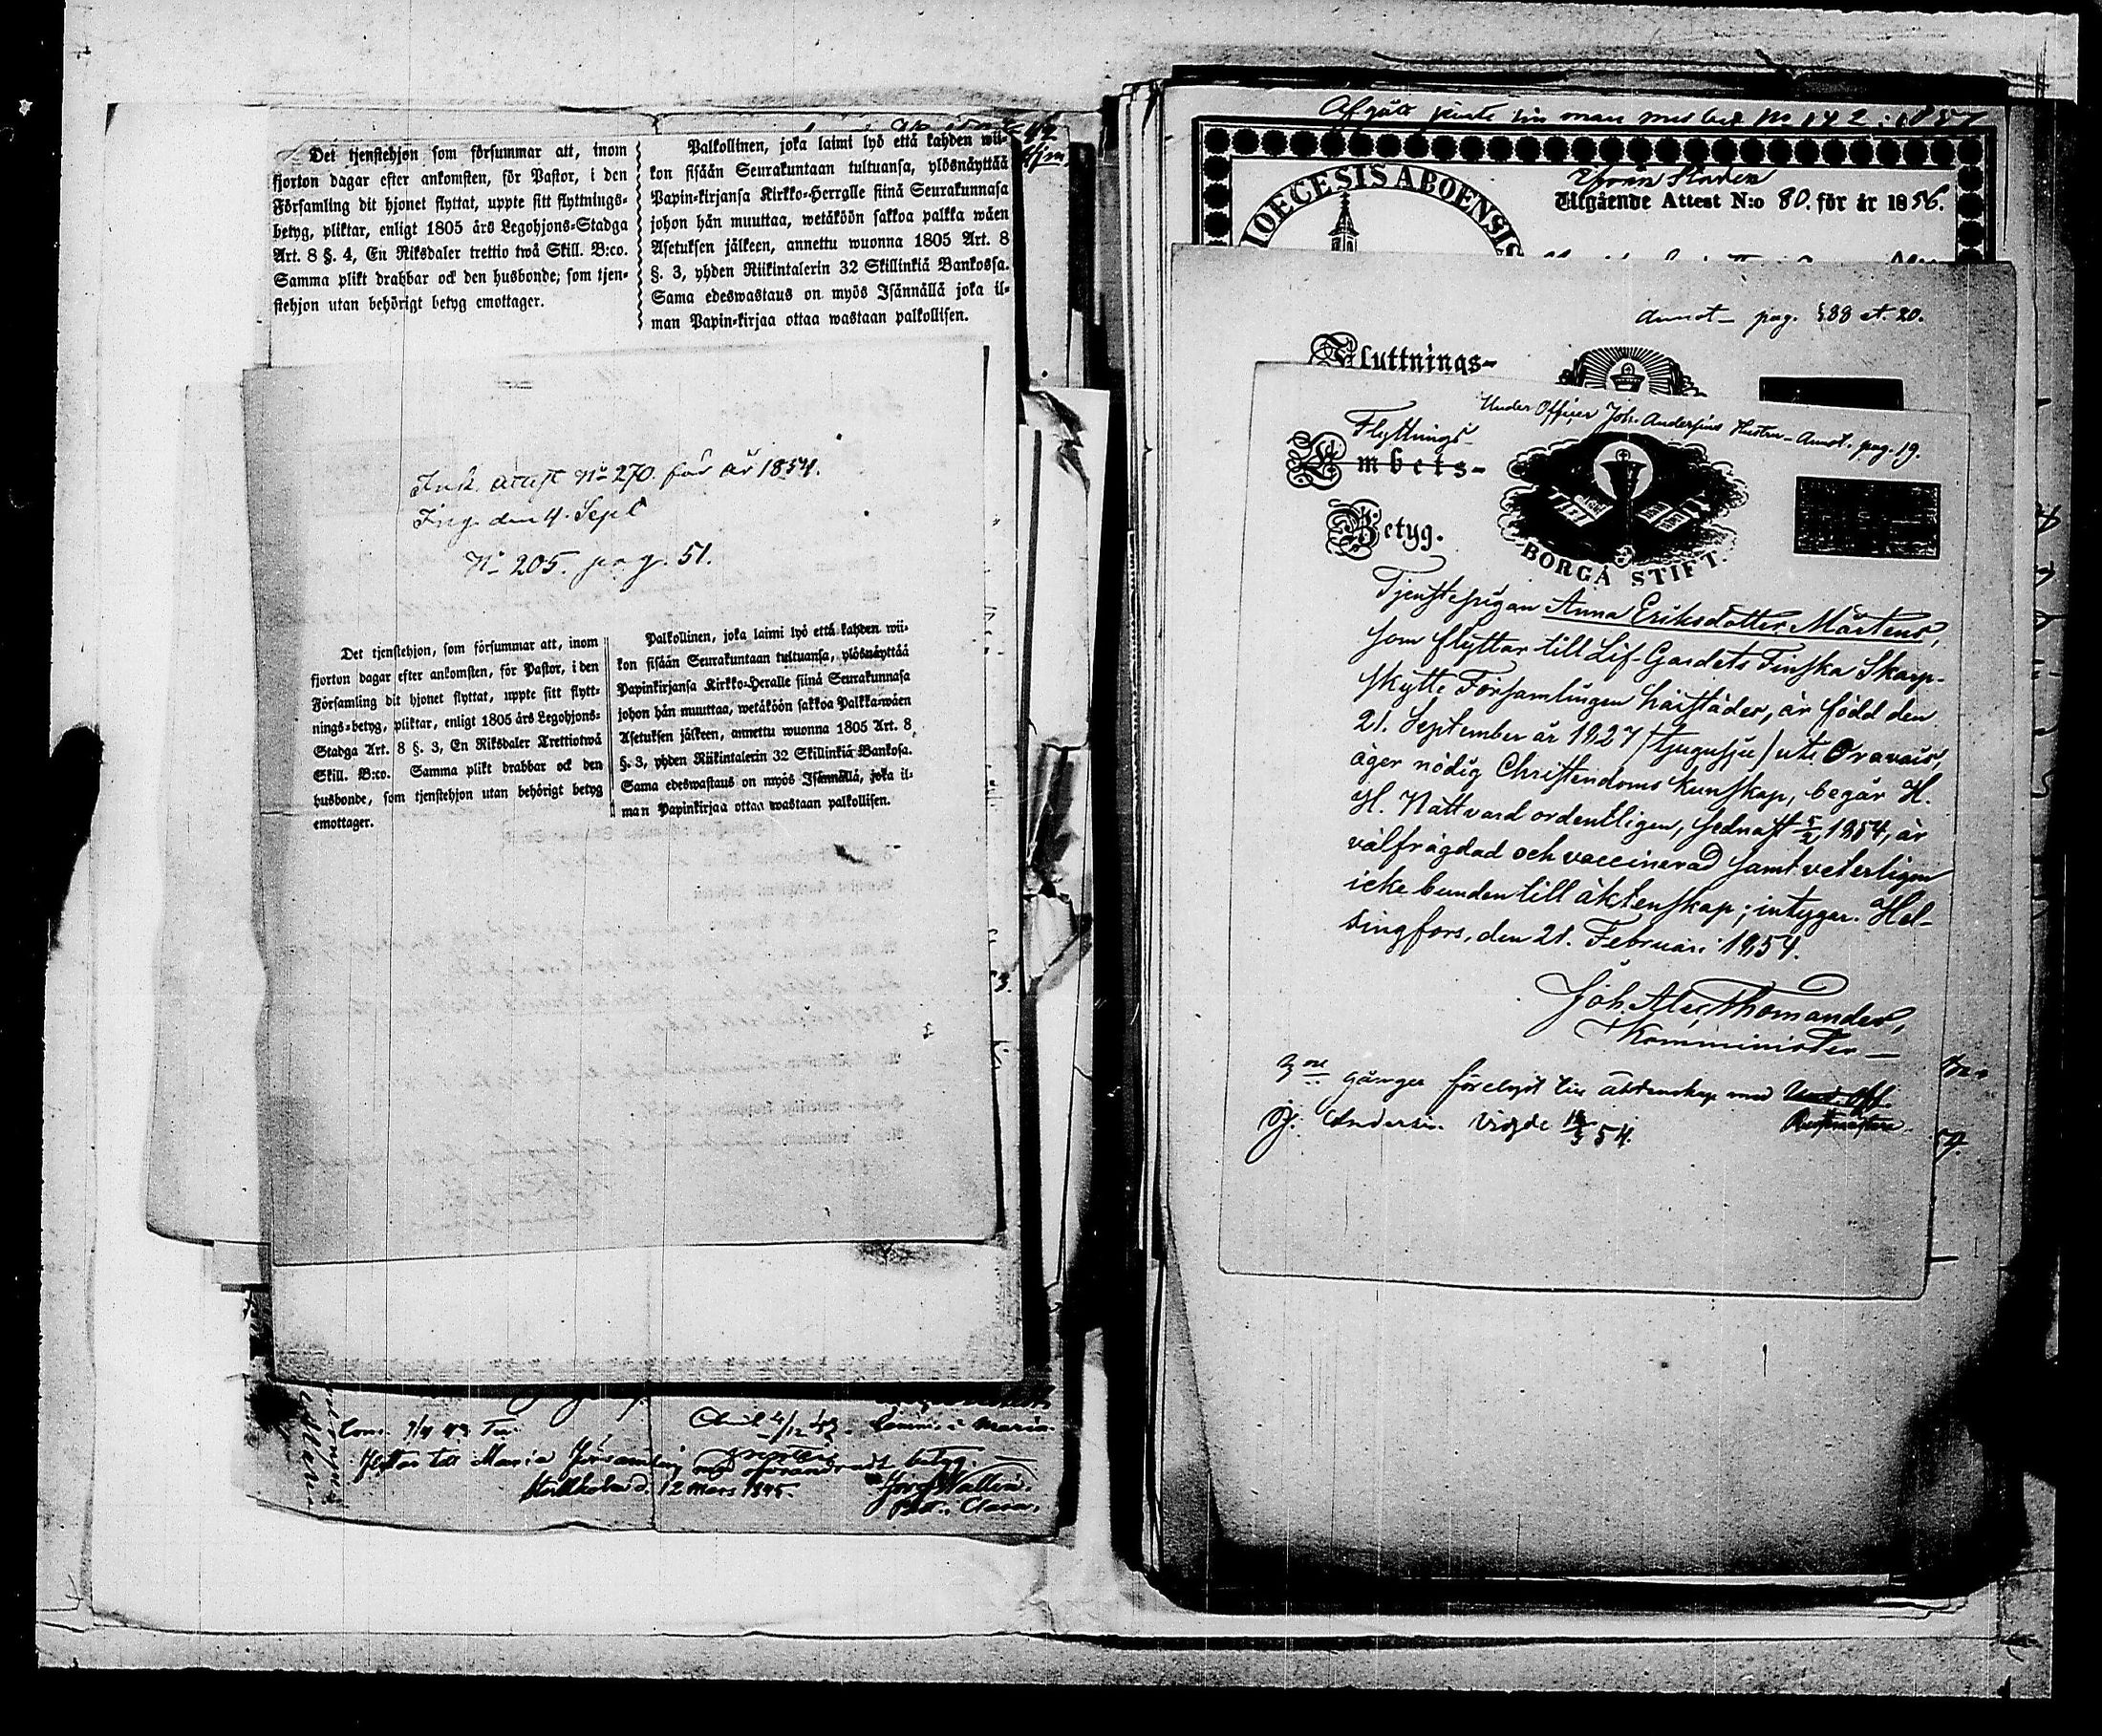 Det tjenstehjon som försummar att, inom
fjorton dagar efter ankomsten, för Pastor, i den
Församling dit hjonet flyttat, uppte sitt flyttnings-
betyg, pliktar, enligt 1805 års Legohjons-Stadga
Art. 8 §. 4, En Riksdaler trettio twå Skill. B:co.
Samma plikt drabbar ock den husbonde; som tjen-
stehjon utan behörigt betyg emottager.
Palkollinen, joka laimi lyö että kahden wii-
kon sisään Seurakuntaan tultuansa, ylösnäyttää
Papin-kirjansa Kirkko-Herralle siinä Seurakunnasa
johon hän muuttaa, wetäköön sakkoa palkka wäen
Asetuksen jälkeen, annettu wuonna 1805 Art. 8
§. 3, yhden Riikintalerin 32 Skillinkiä Bankossa.
Sama edeswastaus on myös Isännällä joka il-
man Papin-kirjaa ottaa wastaan palkollisen.
Ink. attest No 270. för år 1854.
Ing. den 4. Sept
No 205. pag. 51.
Det tjenstehjon, som försummar att, inom
fjorton dagar efter ankomsten, för Pastor, i den
Församling dit hjonet flyttat, uppte sitt flytt-
nings-betyg, pliktar, enligt 1805 års Legohjons-
Stadga Art. 8 §. 3, En Riksdaler Trettiotwå
Skill. B:co. Samma plikt drabbar ock den
husbonde, som tjenstehjon utan behörigt betyg
emottager.
Palkollinen, joka laimi lyö että kahden wii-
kon sisään Seurakuntaan tultuansa, ylösnäyttää
Papinkirjansa Kirkko-Heralle siinä Seurakunnasa
johon hän muuttaa, wetäköön sakkoa Palkka-wäen
Asetuksen jälkeen, annettu wuonna 1805 Art. 8,
§. 3, yhden Riikintalerin 32 Skillinkiä Bankosa.
Sama edeswastaus on myös Isännällä, joka il-
man Papinkirjaa ottaa wastaan palkollisen.
Flyttar till Maria Församling med oförändradt betyg.
Stockholm d. 12 Mars 1845.
Josef Wallin.
Past. Clara.
Afgått jemte sin man med bet. No 142: 1857
DIOECESIS ABOENSIS
Ifrån Staden
Utgående Attest N:o 80. för år 1856.
Annot- pag. 188 et. 20.
Flyttnings-
Under Officer Joh. Andersins Hustru- Annot. pag. 19.
Flyttnings-
Embets-
Betyg.
BORGÅ STIFT.
Tjenstepigan Anna Eriksdotter Mårtens,
som flyttar till Lif-Gardets Finska Skarp-
skytte Församlingen härstädes, är född den
21. September år 1827 /tjugusju/ uti Oravais,
äger nödig Christendoms kunskap, begår H.
H. Nattvard ordentligen, sednast 5/2 1854, är
välfrägdad och vaccinerad samt veterligen
icke bunden till äktenskap; intygar. Hel-
singfors, den 21. Februari 1854.
Joh. Alex. Thomander,
Komminister-
3ne gånger förelyst till äktenskap med Und. Off.
J. Andersin. Vigde 54. Rustmästare